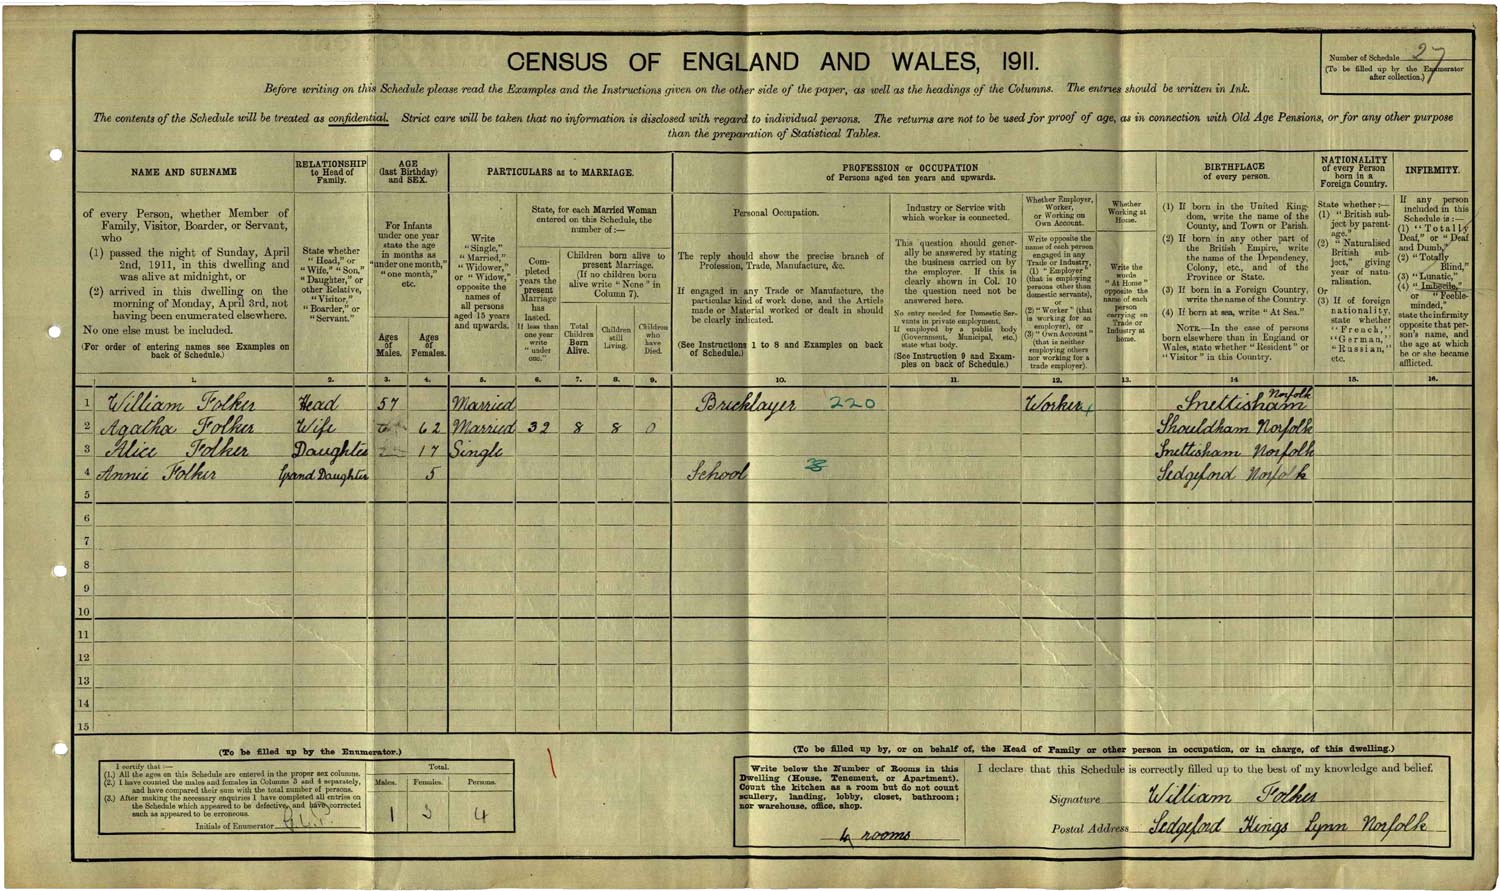 CENSUS OF ENGLAND AND WALES, 1911.
Number of Schedule 27
(To be filled up by the Enumerator
after collection.)
Before writing on this Schedule please read the Examples and the Instructions given on the other side of the paper, as well as the headings of the Columns. The entries should be written in Ink.
The contents of the Schedule will be treated as confidential. Strict care will be taken that no information is disclosed with regard to individual persons. The returns are not to be used for proof of age, as in connection with Old Age Pensions, or for any other purpose
than the preparation of Statistical Tables.
NAME AND SURNAME
of every Person, whether Member of
Family, Visitor, Boarder, or Servant,
who
(1) passed the night of Sunday, April
2nd, 1911, in this dwelling and
was alive at midnight, or
(2) arrived in this dwelling on the
morning of Monday, April 3rd, not
having been enumerated elsewhere.
No one else must be included.
(For order of entering names see Examples on
back of Schedule.)
RELATIONSHIP
to Head of
Family.
State whether
"Head," or
"Wife," "Son,"
"Daughter," or
other Relative,
"Visitor,"
"Boarder," or
"Servant."
AGE
(last Birthday)
and SEX.
For Infants
under one year
state the age
in months as
"under one month,"
"one month,"
etc.
Ages
of
Males.
Ages
of
Females.
PARTICULARS as to MARRIAGE.
Write
"Single,"
"Married,"
"Widower,"
or "Widow,"
opposite the
names of
all persons
aged 15 years
and upwards.
State, for each Married Woman
entered on this Schedule, the
number of:—
Completed
years the
present
Marriage
has
lasted.
If less than
one year
write
"under
one."
Children born alive to
present Marriage.
(If no children born
alive write "None" in
Column 7).
Total
Children
Born
Alive.
Children
still
Living.
Children
who
have
Died.
PROFESSION or OCCUPATION
of Persons aged ten years and upwards.
Personal Occupation.
The reply should show the precise branch of
Profession, Trade, Manufacture, &c.
If engaged in any Trade or Manufacture, the
particular kind of work done, and the Article
made or Material worked or dealt in should
be clearly indicated.
(See Instructions 1 to 8 and Examples on back
of Schedule.)
Industry or Service with
which worker is connected.
This question should gener-
ally be answered by stating
the business carried on by
the employer. If this is
clearly shown in Col. 10
the question need not be
answered here.
No entry needed for Domestic Ser-
vants in private employment.
If employed by a public body
(Government, Municipal, etc.)
state what body.
(See Instruction 9 and Exam-
ples on back of Schedule.)
Whether Employer,
Worker,
or Working on
Own Account.
Write opposite the
name of each person
engaged in any
Trade or Industry,
(1) "Employer"
(that is employing
persons other than
domestic servants),
or
(2) "Worker" (that
is working for an
employer), or
(3) "Own Account"
(that is neither
employing others
nor working for a
trade employer).
Whether
Working at
Home.
Write the
words
"At Home"
opposite the
name of each
person
carrying on
Trade or
Industry at
home.
BIRTHPLACE
of every person.
(1) If born in the United King-
dom, write the name of the
County, and Town or Parish.
(2) If born in any other part of
the British Empire, write
the name of the Dependency,
Colony, etc., and of the
Province or State.
(3) If born in a Foreign Country,
write the name of the Country.
(4) If born at sea, write "At Sea."
NOTE.—In the case of persons
born elsewhere than in England or
Wales, state whether "Resident" or
"Visitor" in this Country.
NATIONALITY
of every Person
born in a
Foreign Country.
State whether:—
(1) "British sub-
ject by parent-
age."
(2) "Naturalised
British sub-
ject," giving
year of natu-
ralisation.
Or
(3) If of foreign
nationality,
state whether
"French,"
"German,"
"Russian,"
etc.
INFIRMITY.
If any person
included in this
Schedule is:—
(1) "Totally
Deaf," or "Deaf
and Dumb,"
(2) "Totally
Blind,"
(3) "Lunatic,"
(4) "Imbecile,"
or "Feeble-
minded,"
state the infirmity
opposite that per-
son's name, and
the age at which
he or she became
afflicted.
1. 2. 3. 4. 5. 6. 7. 8. 9. 10. 11. 12. 13. 14 15. 16.
1 William Folker Head 57 Married Bricklayer 220 Worker Snettisham Norfolk
2 Agatha Folker Wife 62 Married 32 8 8 0 Shouldham Norfolk
3 Alice Folker Daughter 17 Single Snettisham Norfolk
4 Annie Folker Grand Daughter 5 School Sedgeford Norfolk
5
6
7
8
9
10
11
12
13
14
15
(To be filled up by the Enumerator.)
I certify that:—
(1.) All the ages on this Schedule are entered in the proper sex columns.
(2.) I have counted the males and females in Columns 3 and 4 separately,
and have compared their sum with the total number of persons.
(3.) After making the necessary enquiries I have completed all entries on
the Schedule which appeared to be defective, and have corrected
such as appeared to be erroneous.
Initials of Enumerator
Total.
Males. Females. Persons.
1 3 4
(To be filled up by, or on behalf of, the Head of Family or other person in occupation, or in charge, of this dwelling.)
Write below the Number of Rooms in this
Dwelling (House, Tenement, or Apartment).
Count the kitchen as a room but do not count
scullery, landing, lobby, closet, bathroom;
nor warehouse, office, shop.
4 rooms
I declare that this Schedule is correctly filled up to the best of my knowledge and belief.
Signature William Folker
Postal Address Sedgeford Kings Lynn Norfolk